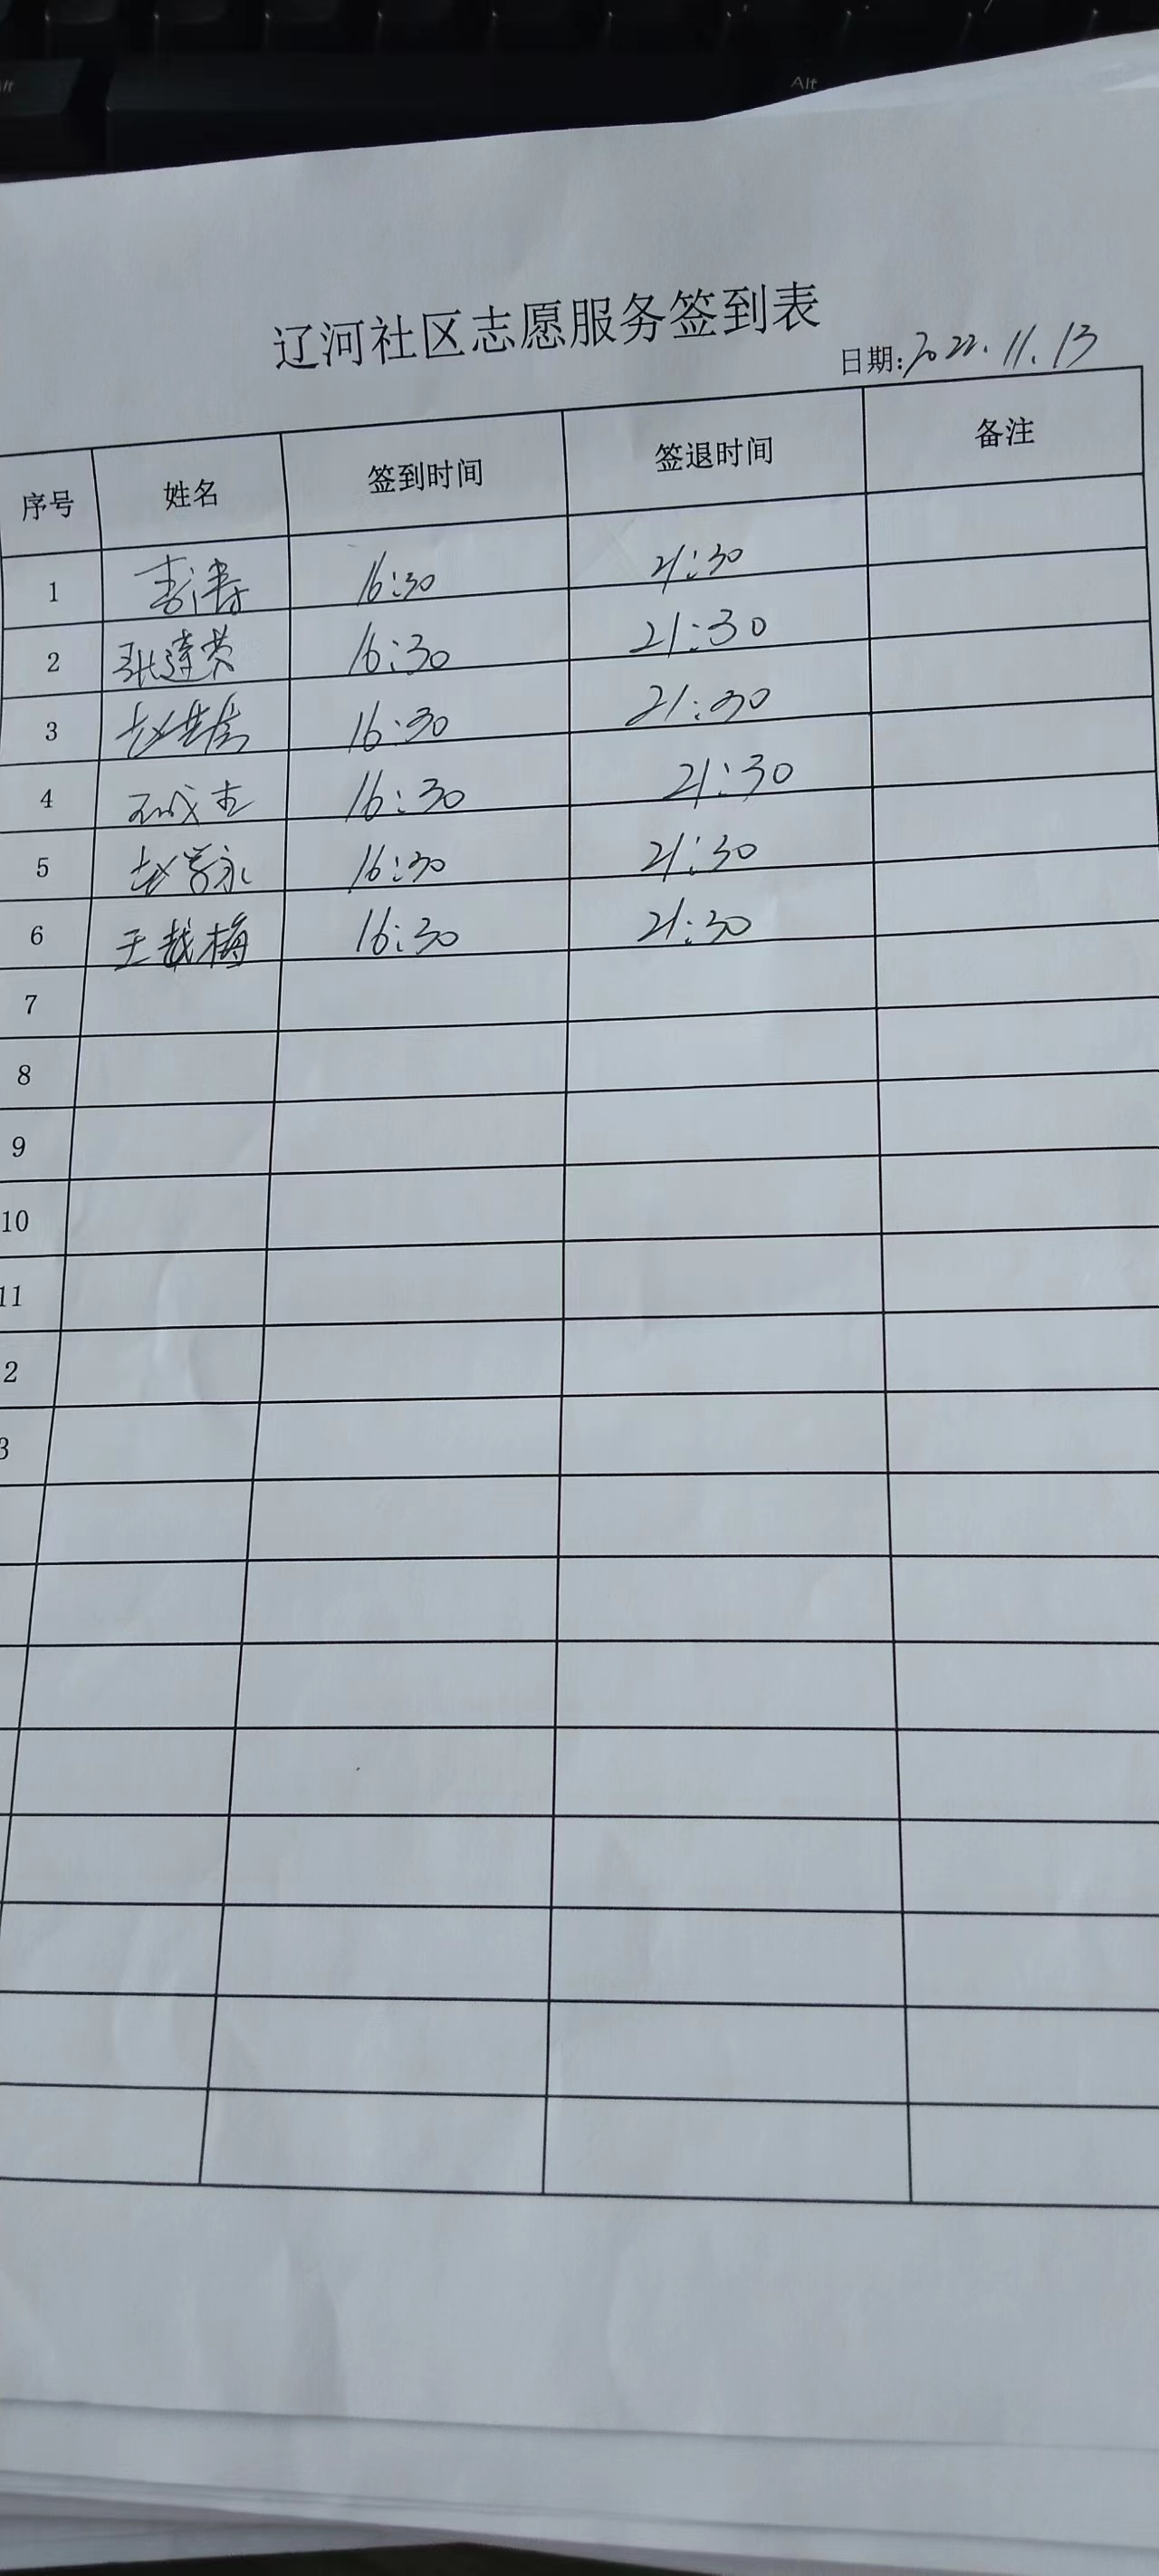 Alt
辽河社区志愿服务签到表
日期:2022.11.13
序号 姓名 签到时间 签退时间 备注
1 李涛 16:30 21:30
2 张建英 16:30 21:30
3 赵 16:30 21:30
4 16:30 21:30
5 赵学永 16:30 21:30
6 王越梅 16:30 21:30
7
8
9
10
11
2
3